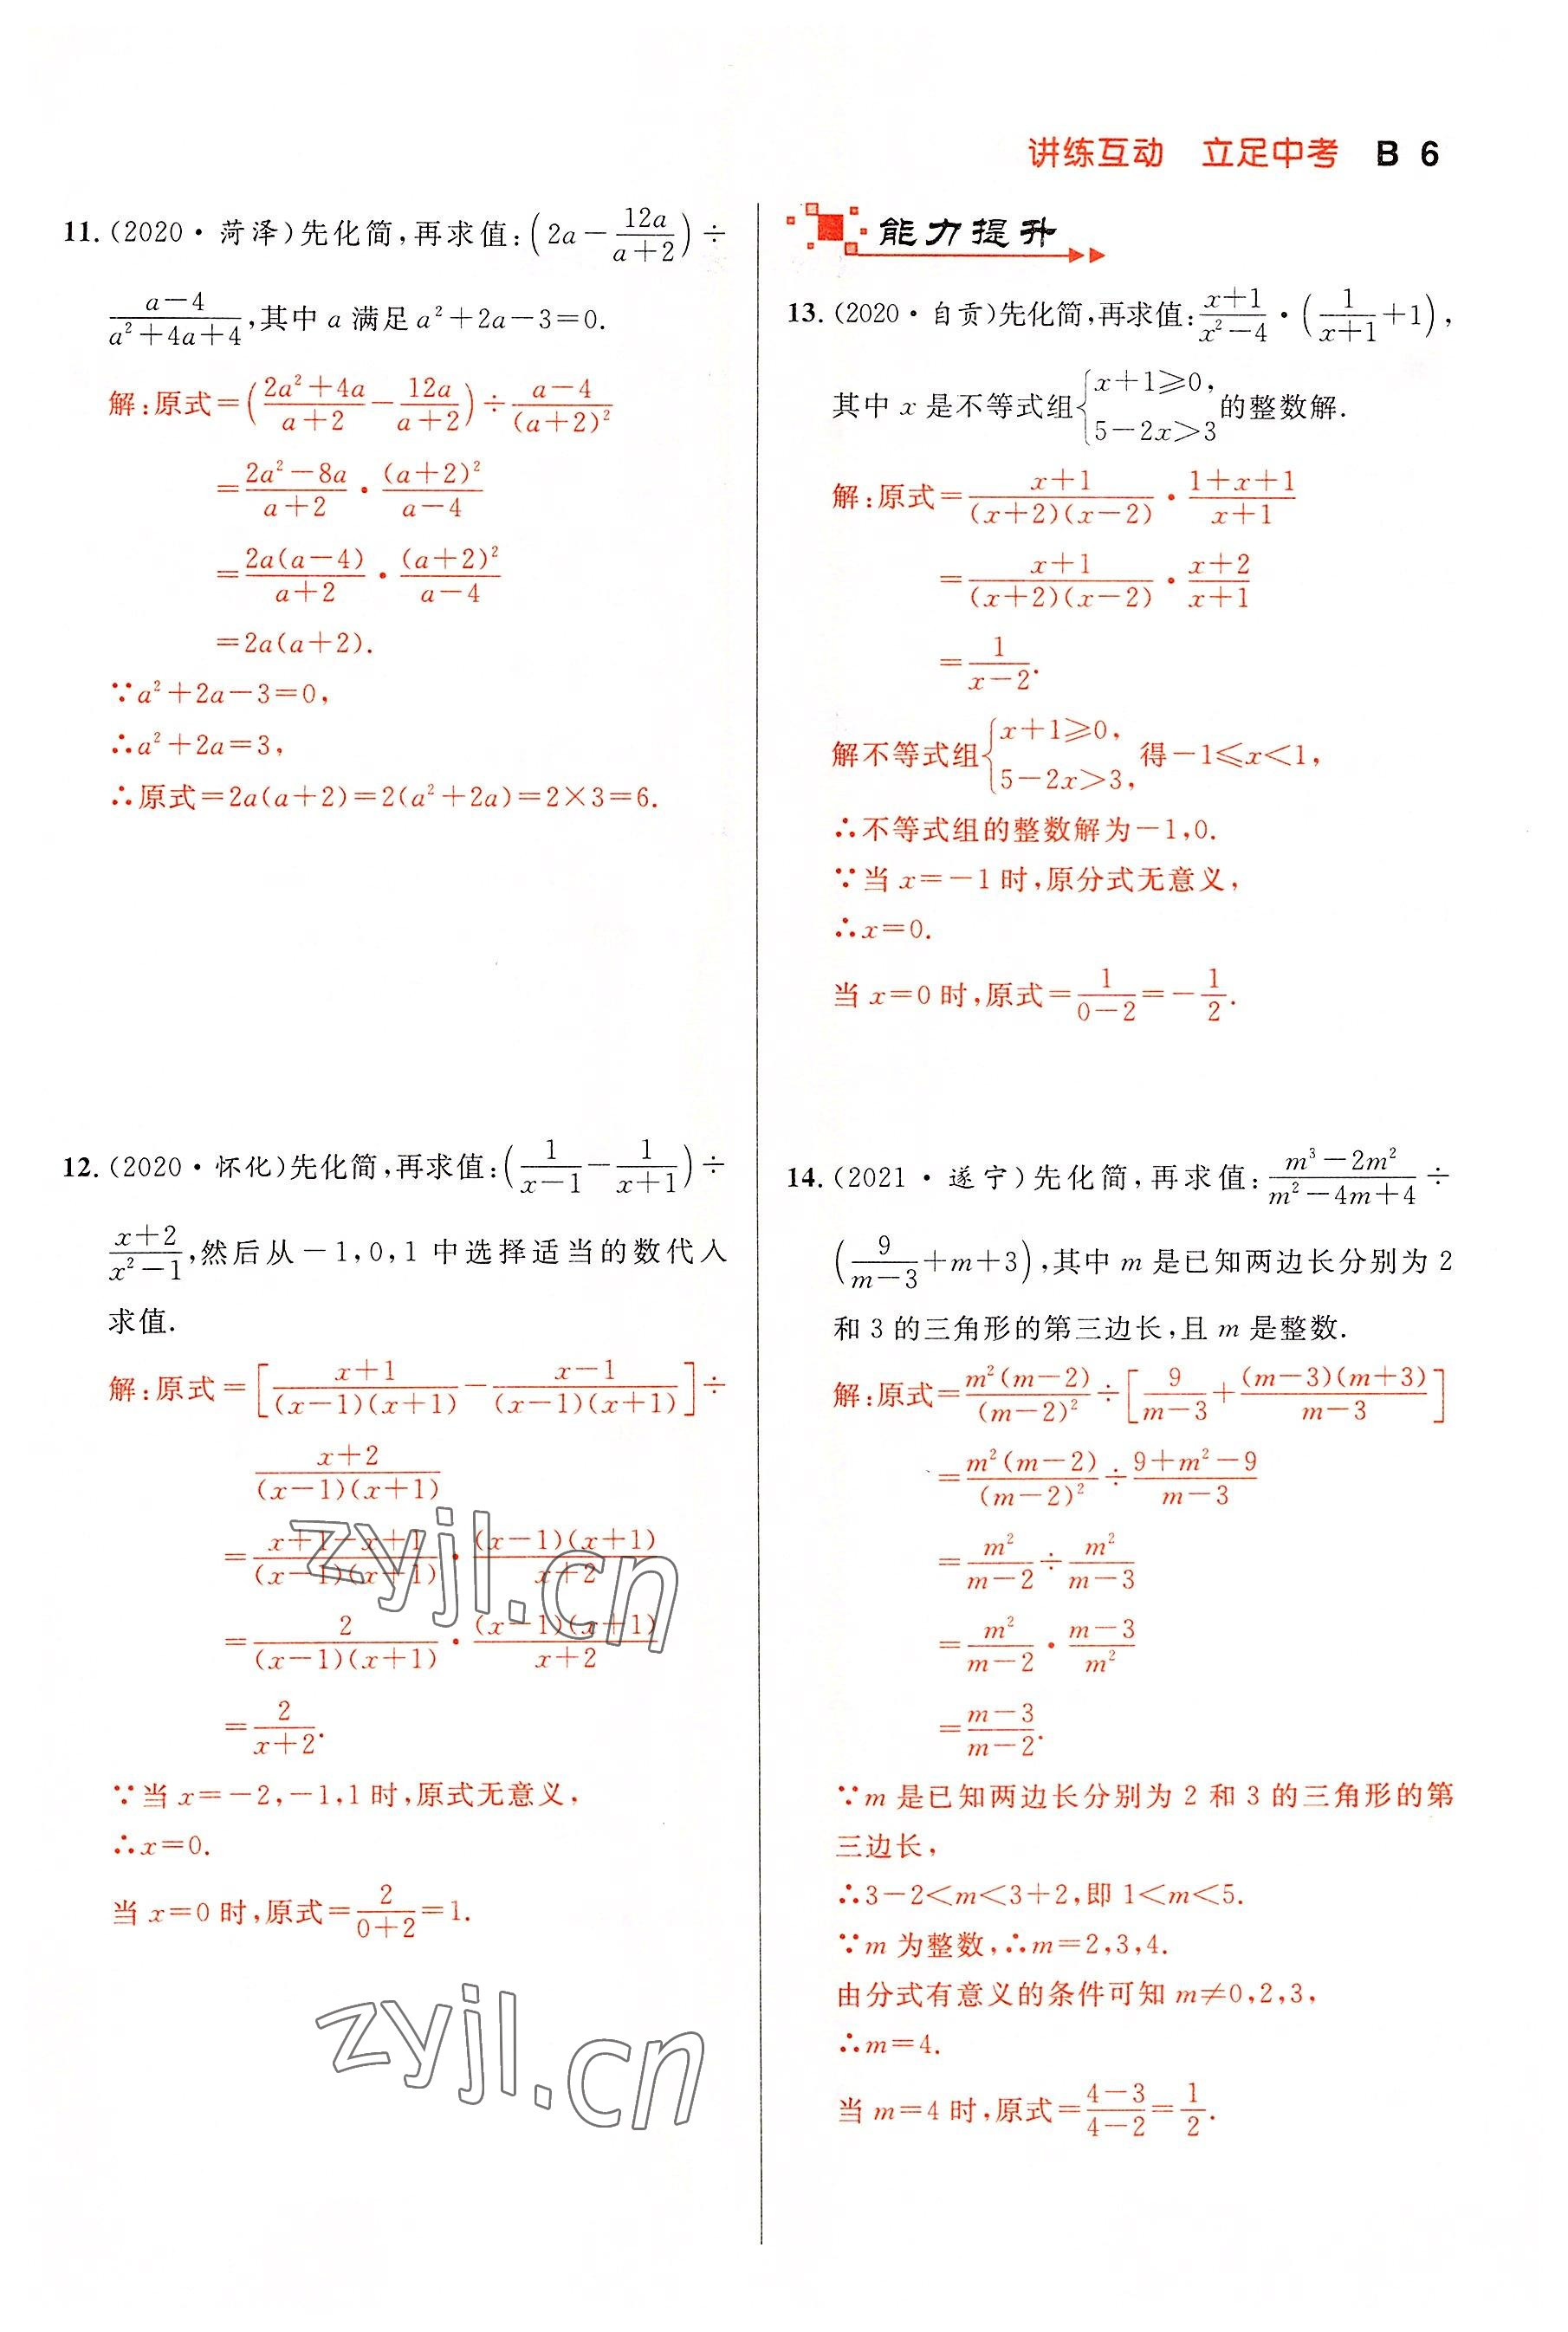 讲练互动 立足中考 B 6
11.(2020·菏泽)先化简,再求值:(2a-\frac{12a}{a+2})÷
\frac{a-4}{a²+4a+4},其中a满足a²+2a-3=0.
解:原式=(\frac{2a²+4a}{a+2}-\frac{12a}{a+2})÷\frac{a-4}{(a+2)²}
=\frac{2a²-8a}{a+2}·\frac{(a+2)²}{a-4}
=\frac{2a(a-4)}{a+2}·\frac{(a+2)²}{a-4}
=2a(a+2).
∵a²+2a-3=0,
∴a²+2a=3,
∴原式=2a(a+2)=2(a²+2a)=2×3=6.
12.(2020·怀化)先化简,再求值:(\frac{1}{x-1}-\frac{1}{x+1})÷
\frac{x+2}{x²-1},然后从-1,0,1中选择适当的数代入
求值.
解:原式=[\frac{x+1}{(x-1)(x+1)}-\frac{x-1}{(x-1)(x+1)}]÷
\frac{x+2}{(x-1)(x+1)}
=\frac{x+1-x+1}{(x-1)(x+1)}·\frac{(x-1)(x+1)}{x+2}
=\frac{2}{(x-1)(x+1)}·\frac{(x-1)(x+1)}{x+2}
=\frac{2}{x+2}.
∵当x=-2,-1,1时,原式无意义,
∴x=0.
当x=0时,原式=\frac{2}{0+2}=1.
能力提升
13.(2020·自贡)先化简,再求值:\frac{x+1}{x²-4}·(\frac{1}{x+1}+1),
其中x是不等式组{x+1≥0, 5-2x>3的整数解.
解:原式=\frac{x+1}{(x+2)(x-2)}·\frac{1+x+1}{x+1}
=\frac{x+1}{(x+2)(x-2)}·\frac{x+2}{x+1}
=\frac{1}{x-2}.
解不等式组{x+1≥0, 5-2x>3,得-1≤x<1,
∴不等式组的整数解为-1,0.
∵当x=-1时,原分式无意义,
∴x=0.
当x=0时,原式=\frac{1}{0-2}=-\frac{1}{2}.
14.(2021·遂宁)先化简,再求值:\frac{m³-2m²}{m²-4m+4}÷
(\frac{9}{m-3}+m+3),其中m是已知两边长分别为2
和3的三角形的第三边长,且m是整数.
解:原式=\frac{m²(m-2)}{(m-2)²}÷[\frac{9}{m-3}+\frac{(m-3)(m+3)}{m-3}]
=\frac{m²(m-2)}{(m-2)²}÷\frac{9+m²-9}{m-3}
=\frac{m²}{m-2}÷\frac{m²}{m-3}
=\frac{m²}{m-2}·\frac{m-3}{m²}
=\frac{m-3}{m-2}.
∵m是已知两边长分别为2和3的三角形的第
三边长,
∴3-2<m<3+2,即1<m<5.
∵m为整数,∴m=2,3,4.
由分式有意义的条件可知m≠0,2,3,
∴m=4.
当m=4时,原式=\frac{4-3}{4-2}=\frac{1}{2}.
zyjl.cn
zyjl.cn